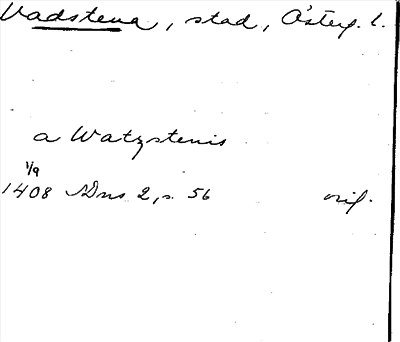 Vadstena, stad, Österg. l.
a Watzstenis
1/9
1408 SDns 2, s. 56 orig.